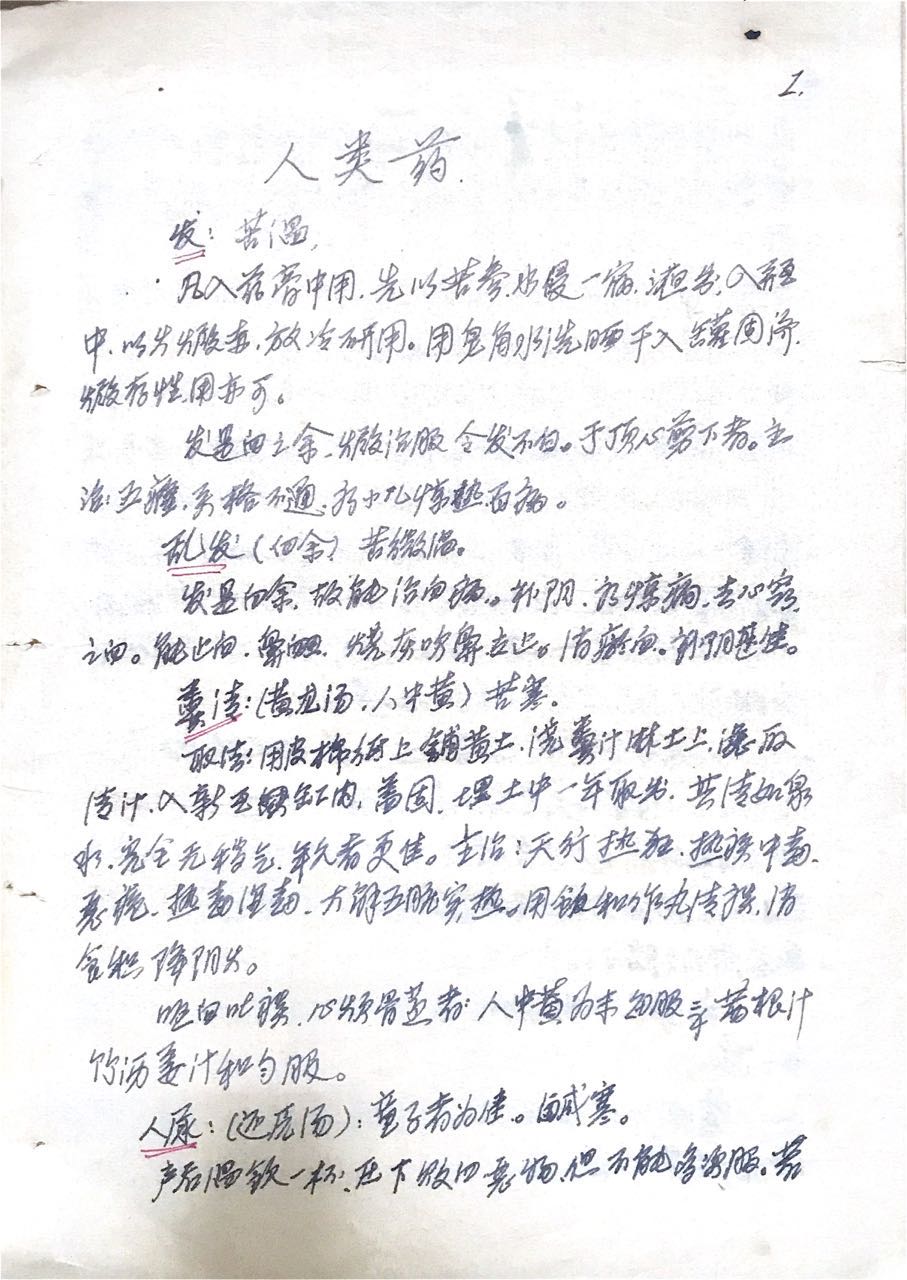 1.
人类药.
发：苦温，
凡入药膏中用.先以苦参水浸一宿.漉出，入瓶
中.以火煅赤.放冷研用。用皂角水洗晒干入罐固济.
煅存性.用亦可。
发是血之余.煅治服令发不白。于顶心剪下者。主
治：五癃，关格不通.疗小儿惊热百病。
乱发（血余）苦微温。
发是血余，故能治血病。补阴.疗惊痫，去心窍
之血。能止血.鼻衄.烧灰吹鼻立止。消瘀血。补阴甚佳。
粪清：（黄龙汤.人中黄）苦寒.
取法：用皮棉纸上铺黄土，浇粪汁淋土上.滤取
清汁.入新瓦缸内，盖固.埋土中一年取出.其清如泉
水.完全无秽气，年久者更佳。主治：天行热狂.热疾中毒.
恶疮.热毒湿毒.大解五脏实热。用饭和作丸清痰，消
食积降阴火。
呕血吐痰，心烦骨蒸者 人中黄为末每服三钱 茜根汁
竹沥姜汁和匀服。
人尿：（还元汤）：童子者为佳。咸寒。
产后温饮一杯.压下败血恶物.但不能多服。若